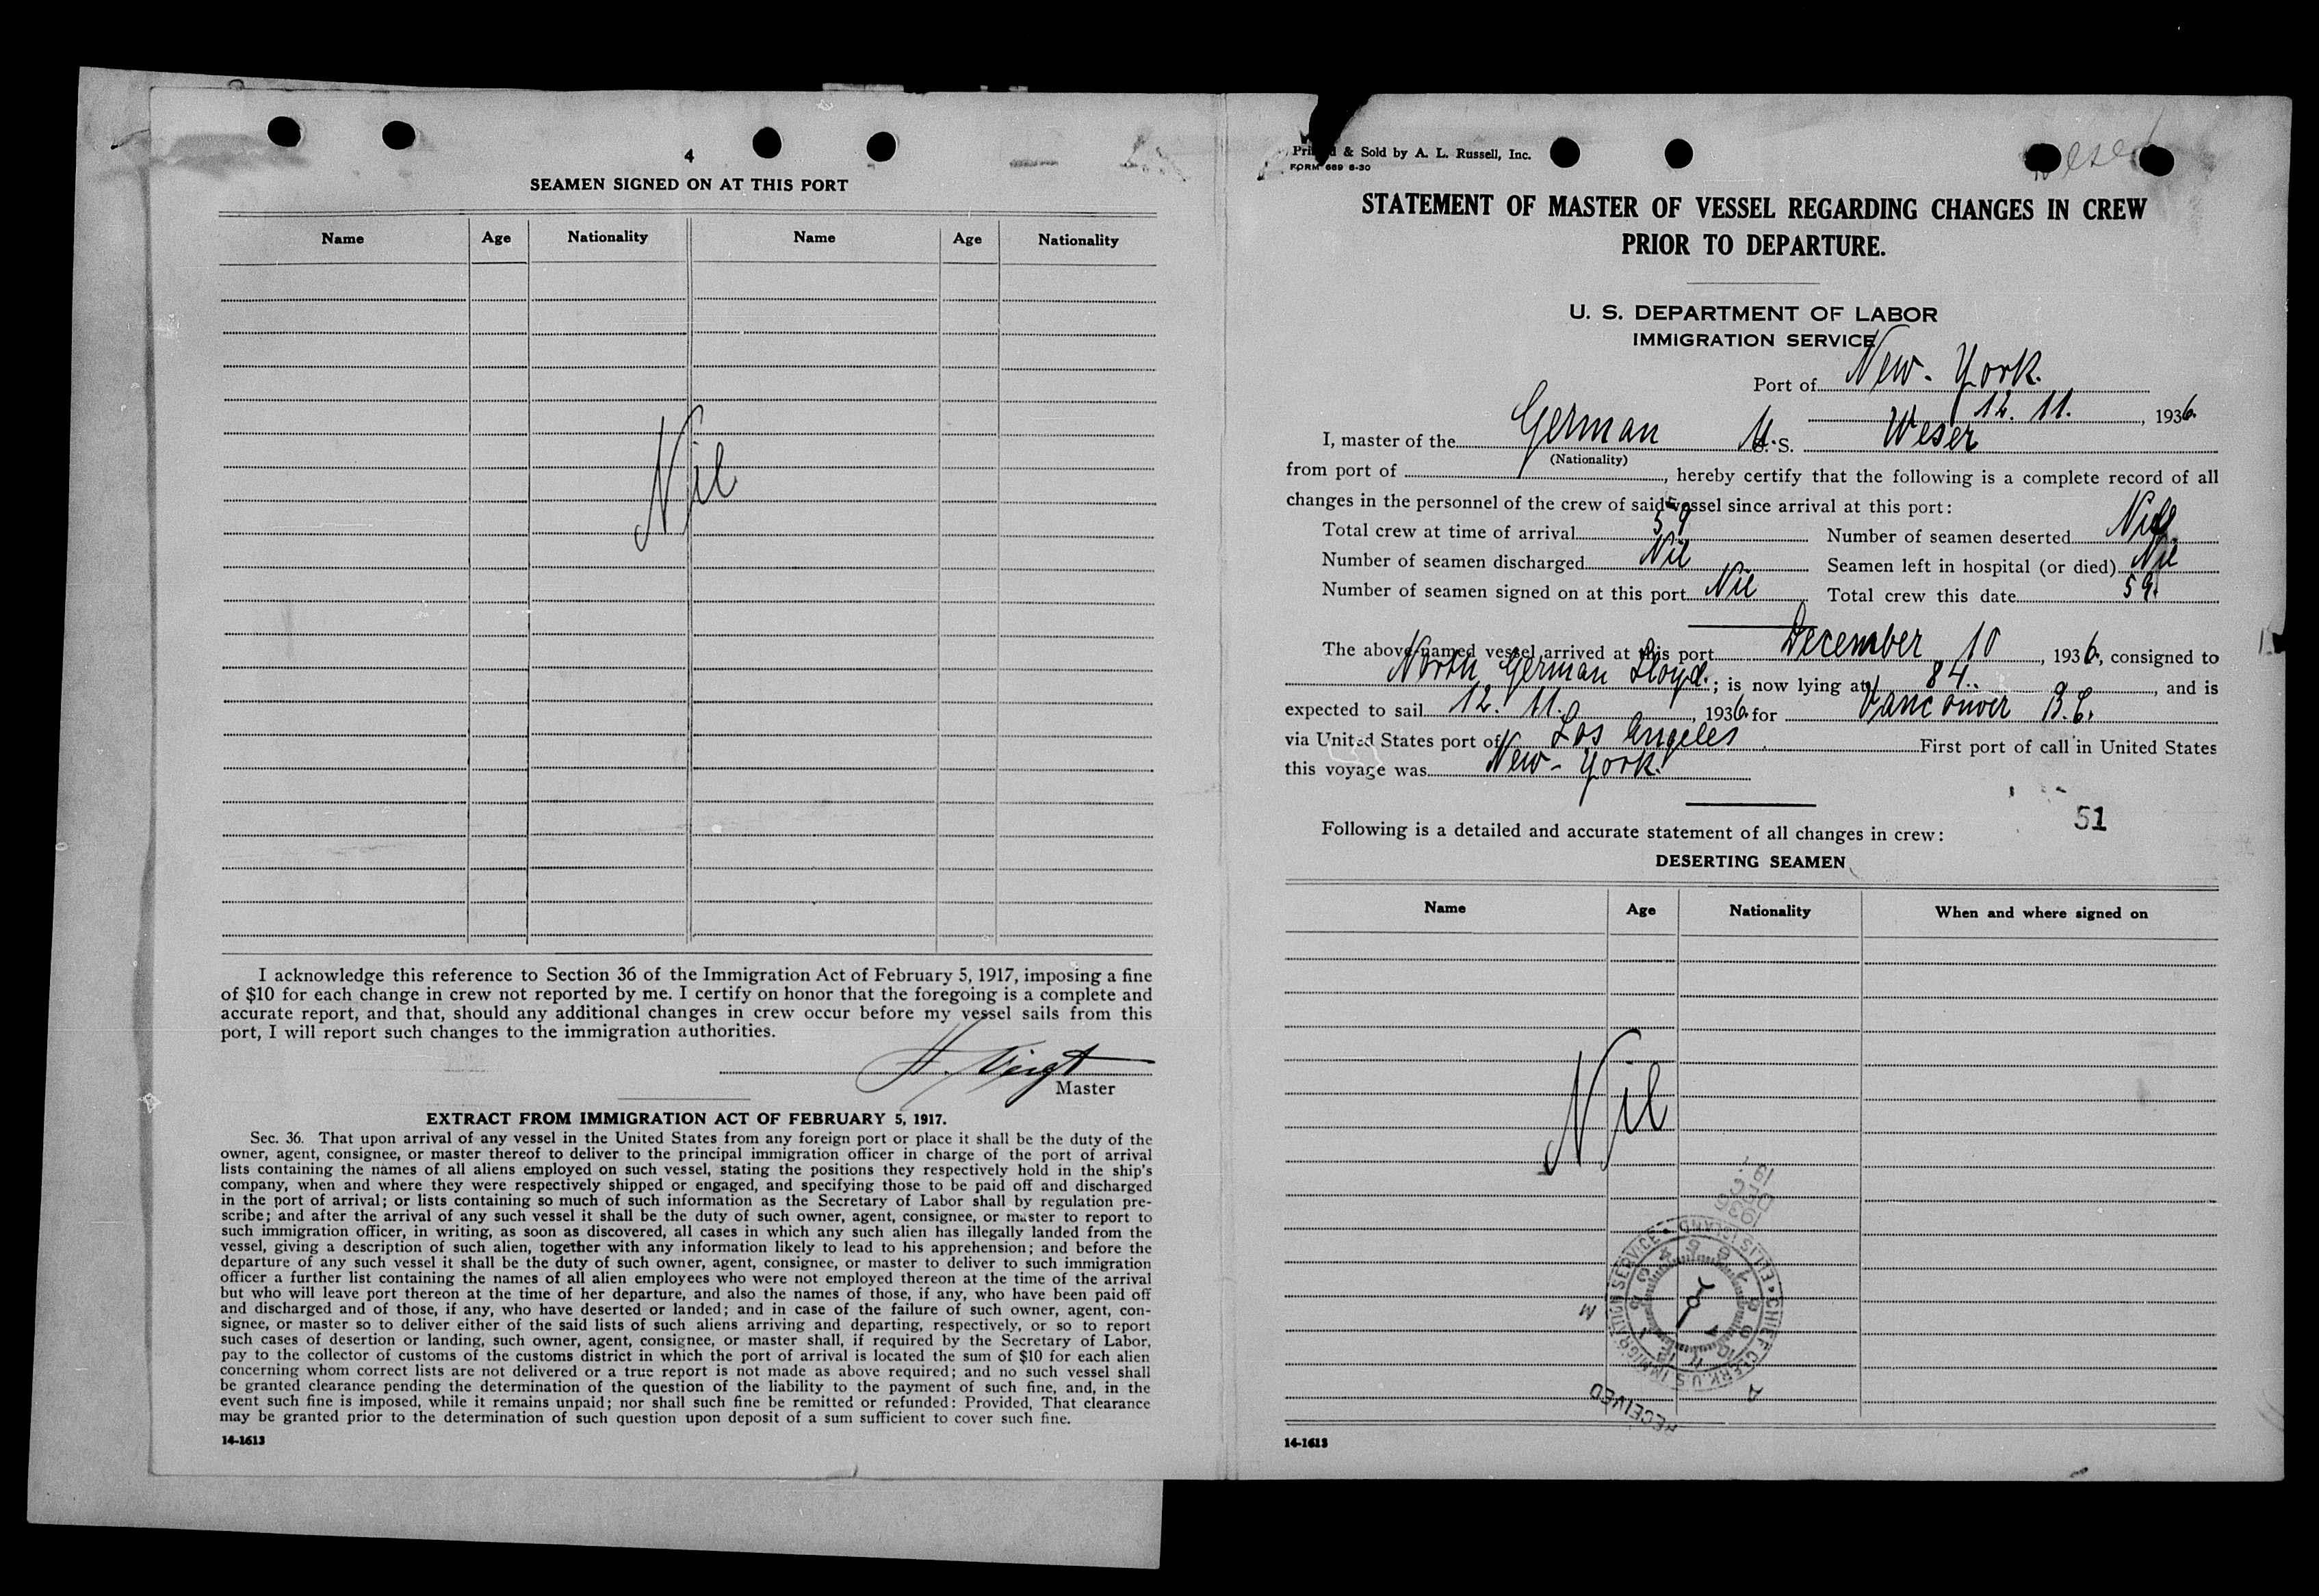 4
SEAMEN SIGNED ON AT THIS PORT
Name Age Nationality Name Age Nationality
Nil
I acknowledge this reference to Section 36 of the Immigration Act of February 5, 1917, imposing a fine
of $10 for each change in crew not reported by me. I certify on honor that the foregoing is a complete and
accurate report, and that, should any additional changes in crew occur before my vessel sails from this
port, I will report such changes to the immigration authorities.
H.
Master
EXTRACT FROM IMMIGRATION ACT OF FEBRUARY 5, 1917.
Sec. 36. That upon arrival of any vessel in the United States from any foreign port or place it shall be the duty of the
owner, agent, consignee, or master thereof to deliver to the principal immigration officer in charge of the port of arrival
lists containing the names of all aliens employed on such vessel, stating the positions they respectively hold in the ship's
company, when and where they were respectively shipped or engaged, and specifying those to be paid off and discharged
in the port of arrival; or lists containing so much of such information as the Secretary of Labor shall by regulation pre-
scribe; and after the arrival of any such vessel it shall be the duty of such owner, agent, consignee, or master to report to
such immigration officer, in writing, as soon as discovered, all cases in which any such alien has illegally landed from the
vessel, giving a description of such alien, together with any information likely to lead to his apprehension; and before the
departure of any such vessel it shall be the duty of such owner, agent, consignee, or master to deliver to such immigration
officer a further list containing the names of all alien employees who were not employed thereon at the time of the arrival
but who will leave port thereon at the time of her departure, and also the names of those, if any, who have been paid off
and discharged and of those, if any, who have deserted or landed; and in case of the failure of such owner, agent, con-
signee, or master so to deliver either of the said lists of such aliens arriving and departing, respectively, or so to report
such cases of desertion or landing, such owner, agent, consignee, or master shall, if required by the Secretary of Labor,
pay to the collector of customs of the customs district in which the port of arrival is located the sum of $10 for each alien
concerning whom correct lists are not delivered or a true report is not made as above required; and no such vessel shall
be granted clearance pending the determination of the question of the liability to the payment of such fine, and, in the
event such fine is imposed, while it remains unpaid; nor shall such fine be remitted or refunded: Provided, That clearance
may be granted prior to the determination of such question upon deposit of a sum sufficient to cover such fine.
14-1613
Weser
Printed & Sold by A. L. Russell, Inc.
FORM 689 6-30
STATEMENT OF MASTER OF VESSEL REGARDING CHANGES IN CREW
PRIOR TO DEPARTURE.
U. S. DEPARTMENT OF LABOR
IMMIGRATION SERVICE
Port of New-York.
12. 11., 1936.
I, master of the German M.S. Weser
(Nationality)
from port of , hereby certify that the following is a complete record of all
changes in the personnel of the crew of said vessel since arrival at this port:
Total crew at time of arrival 59 Number of seamen deserted Nil
Number of seamen discharged Nil Seamen left in hospital (or died) Nil
Number of seamen signed on at this port Nil Total crew this date 59.
The above-named vessel arrived at this port December 10, 1936, consigned to
North German Lloyd.; is now lying at 84., and is
expected to sail 12. 11., 1936 for Vancouver B.C.
via United States port of Los Angeles First port of call in United States
this voyage was New-York.
51
Following is a detailed and accurate statement of all changes in crew:
DESERTING SEAMEN
Name Age Nationality When and where signed on
Nil
RECEIVED
CHIEF CLERK, U.S. IMMIGRATION SERVICE • ELLIS ISLAND
A M
14-1613